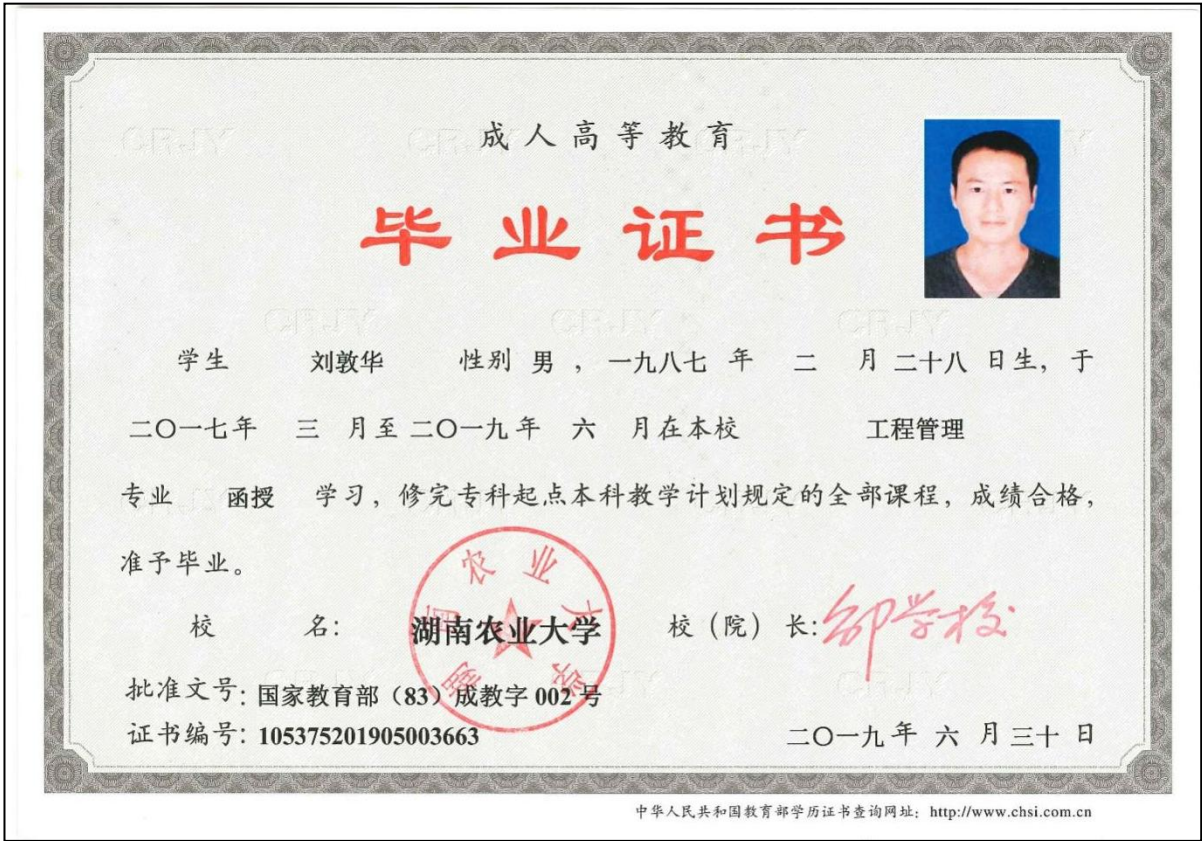 成人高等教育
毕业证书
学生 刘敦华 性别 男 ，一九八七 年 二 月 二十八 日生，于
二〇一七年 三 月至 二〇一九年 六 月在本校 工程管理
专业 函授 学习，修完专科起点本科教学计划规定的全部课程，成绩合格，
准予毕业。
校 名： 湖南农业大学 校（院）长：邹学校
湖南农业大学
批准文号：国家教育部（83）成教字 002 号
证书编号：105375201905003663 二〇一九年 六 月 三十 日
中华人民共和国教育部学历证书查询网址：http://www.chsi.com.cn
CRJY
CRJY
CRJY
CRJY
CRJY